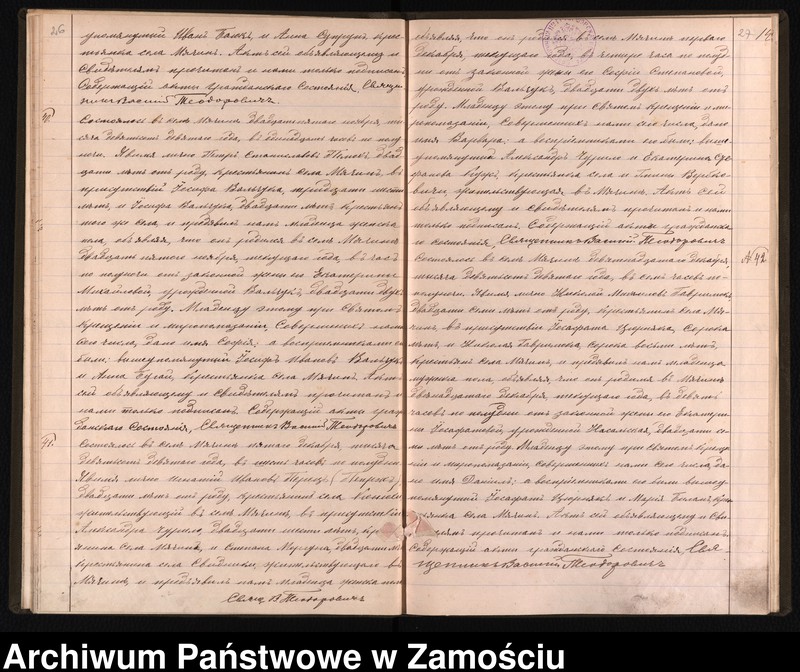 26
упомянутый Иванъ Панкъ, и Анна Супрунъ, крес-
тьянка села Мячинъ. Актъ сей объявляющему и
Свидѣтелямъ прочитанъ и нами только подписанъ
Содержащій акты гражданскаго Состоянія, Священ-
никъ Василій Теодоровичъ.
40.
Состоялось въ селѣ Мячинъ двадцать ноября ты-
сяча девятьсотъ девятаго года, въ часовъ по полу-
дни. Явился лично Петръ Станиславовъ двад-
цати лѣтъ отъ роду, крестьянинъ села Мячинъ, въ
присутствіи Іосифа Вальчука, тридцати шести
лѣтъ, и Іосифа Вальчука, двадцати лѣтъ крестьянъ
того же села, и предъявилъ намъ младенца женска
пола, объявляя, что онъ родился въ селѣ Мячинъ
двадцать пятого ноября, текущаго года, въ часъ
по полуночи отъ законной жены его Екатерины
Михайловой, урожденной Вальчукъ, двадцати двухъ
лѣтъ отъ роду. Младенцу этому при Святомъ
Крещеніи и мѵропомазаніи, Совершенныхъ нами
сего числа, дано имя Софія: а воспріемниками его
были: вышеупомянутый Іосифъ Ивановъ Вальчукъ
и Анна Бугай, крестьянка села Мячинъ. Актъ
сей объявляющему и свидѣтелямъ прочитанъ и
нами только подписанъ. Содержащій акты граж-
данскаго Состоянія, Священникъ Василій Теодоровичъ
41.
Состоялось въ селѣ Мячинъ пятаго Декабря, тысяча
девятьсотъ девятаго года, въ шесть часовъ по полудни.
Явился лично Игнатій Ивановъ
двадцати лѣтъ отъ роду, крестьянинъ села
жительствующій въ селѣ Мячинъ, въ присутствіи
Александра Чурило, двадцати шести лѣтъ, кре-
стьянина села Мячинъ, и Степана двадцати лѣ
крестьянина села жительствующаго въ
Мячинъ, и предъявилъ намъ младенца женска пола
Свящ. В. Теодоровичъ
27
объявляя, что онъ родился въ селѣ Мячинъ перваго
Декабря, текущаго года, въ четыре часа по полуд-
ни отъ законной жены его Софіи Степановой,
урожденной Вальчукъ, двадцати двухъ лѣтъ отъ
роду. Младенцу этому при Святомъ Крещеніи и мѵ-
ропомазаніи, Совершенныхъ нами сего числа, дано
имя Варвара: а воспріемниками его были: выше-
упомянутый Александръ Чурило и Екатерина Сте-
фанова крестьянка села
жительствующая въ Мячинъ. Актъ сей
объявляющему и свидѣтелямъ прочитанъ и нами
только подписанъ. Содержащій акты гражданска-
го состоянія, Священникъ Василій Теодоровичъ
№ 42
Состоялось въ селѣ Мячинъ двѣнадцатаго Декабря,
тысяча девятьсотъ девятаго года, въ семь часовъ по-
полудни. Явился лично Николай Михаиловъ Гаврилюкъ,
двадцати семи лѣтъ отъ роду, крестьянинъ села Мя-
чинъ, въ присутствіи Іосафата сорока
лѣтъ, и Николая Гаврилюка, сорока восьми лѣтъ,
крестьянъ села Мячинъ, и предъявилъ намъ младенца
мужска пола, объявляя, что онъ родился въ Мячинъ
двѣнадцатаго Декабря, текущаго года, въ девять
часовъ по полудни отъ законной жены его Екатери-
ны Іосафатовой, урожденной двадцати се-
ми лѣтъ отъ роду. Младенцу этому при святомъ креще-
ніи и мѵропомазаніи, совершенныхъ нами сего числа, да-
но имя Даніилъ: а воспріемниками его были вышеу-
помянутый Іосафатъ и Марія крес-
тьянка села Мячинъ. Актъ сей объявляющему и Сви-
дѣтелямъ прочитанъ и нами только подписанъ.
Содержащій акты гражданскаго Состоянія, Свя-
щенникъ Василій Теодоровичъ
Archiwum Państwowe w Zamościu